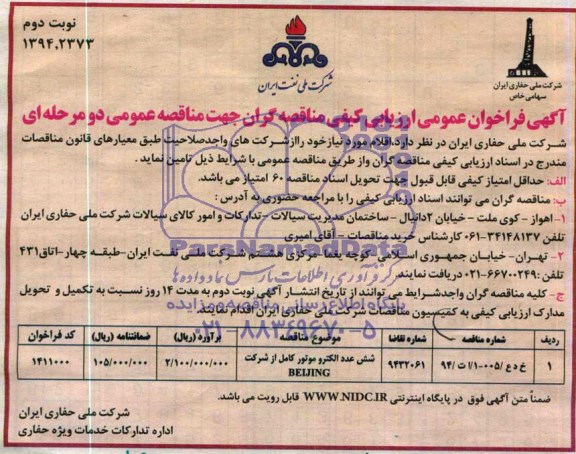 نوبت دوم
۱۳۹۴،۲۳۷۳
شرکت ملی نفت ایران
شرکت ملی حفاری ایران
سهامی خاص
آگهی فراخوان عمومی ارزیابی کیفی مناقصه گران جهت مناقصه عمومی دو مرحله ای
شرکت ملی حفاری ایران در نظر دارد، اقلام مورد نیاز خود را از شرکت های واجد صلاحیت طبق معیارهای قانون مناقصات
مندرج در اسناد ارزیابی کیفی مناقصه گران و از طریق مناقصه عمومی با شرایط ذیل تامین نماید .
الف: حداقل امتیاز کیفی قابل قبول جهت تحویل اسناد مناقصه ۶۰ امتیاز می باشد.
ب: مناقصه گران می توانند اسناد ارزیابی کیفی را با مراجعه حضوری به آدرس :
۱-اهواز - کوی ملت - خیابان ۲دانیال - ساختمان مدیریت سیالات - تدارکات و امور کالای سیالات شرکت ملی حفاری ایران
تلفن ۳۴۱۴۸۱۳۷-۰۶۱ کارشناس خرید مناقصات - آقای امیری
۲- تهران- خیابان جمهوری اسلامی-کوچه یغما مرکزی هشتم شرکت ملی نفت ایران-طبقه چهار-اتاق۴۳۱
تلفن:۶۶۷۰۰۲۴۹-۰۲۱ دریافت نمایند.
ج- کلیه مناقصه گران واجد شرایط می توانند از تاریخ انتشار آگهی نوبت دوم به مدت ۱۴ روز نسبت به تکمیل و تحویل
مدارک ارزیابی کیفی به کمیسیون مناقصات شرکت ملی حفاری ایران اقدام نمایند.
ParsNamadData
فرآوری اطلاعات پارس نماد داده ها
پایگاه اطلاع رسانی مناقصه و مزایده
۰۲۱-۸۸۳۴۹۶۷۰-۵
ردیف شماره مناقصه شماره تقاضا موضوع مناقصه برآورد (ریال) ضمانتنامه (ریال) کد فراخوان
۱ خ د ع /۰۰۵-۱/ا ت /۹۴ ۹۴۳۲۰۶۱ شش عدد الکترو موتور کامل از شرکت BEIJING ۲/۱۰۰/۰۰۰/۰۰۰ ۱۰۵/۰۰۰/۰۰۰ ۱۴۱۱۰۰۰
ضمناً متن آگهی فوق در پایگاه اینترنتی WWW.NIDC.IR قابل رویت می باشد.
شرکت ملی حفاری ایران
اداره تدارکات خدمات ویژه حفاری